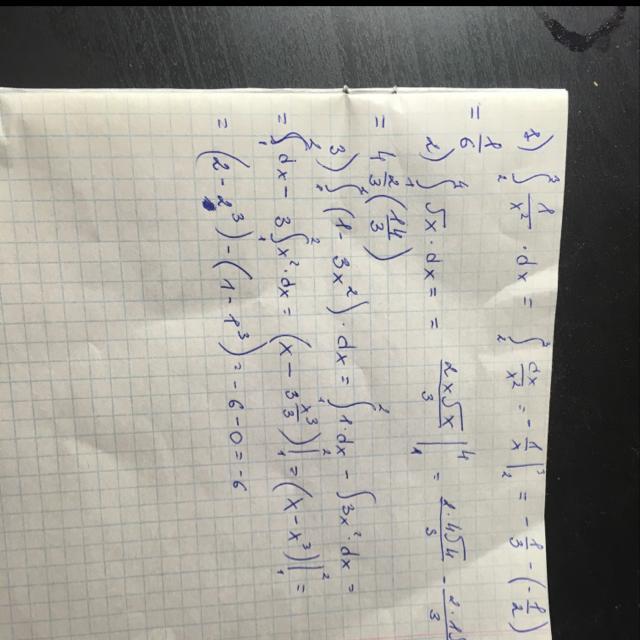 1) ∫₂³ 1/x² · dx = ∫₂³ dx/x² = - 1/x |₂³ = - 1/3 - (- 1/2)
= 1/6
2) ∫₁⁴ √x · dx = = 2x√x/3 |₁⁴ = 2·4√4/3 - 2·1
= 4 2/3 (14/3)
3) ∫₁² (1 - 3x²) · dx = ∫₁² 1 dx - ∫ 3x² · dx =
= ∫₁² dx - 3 ∫₁² x² · dx = (x - 3 x³/3) |₁² = (x - x³) |₁² =
= (2 - 2³) - (1 - 1³) = - 6 - 0 = - 6